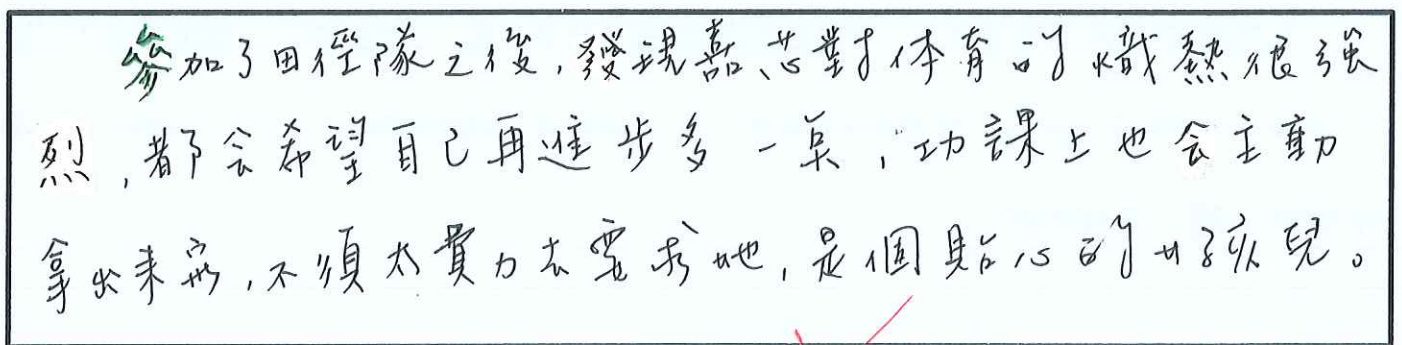 參加了田徑隊之後,發現嘉芯對体育的熾熱很強
烈,都会希望自己再進步多一点,功課上也会主動
拿出來寫,不須太費力去要求她,是個貼心的女孩兒。